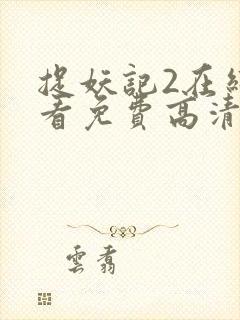 捉妖記2在線
看免費高清
雲翥